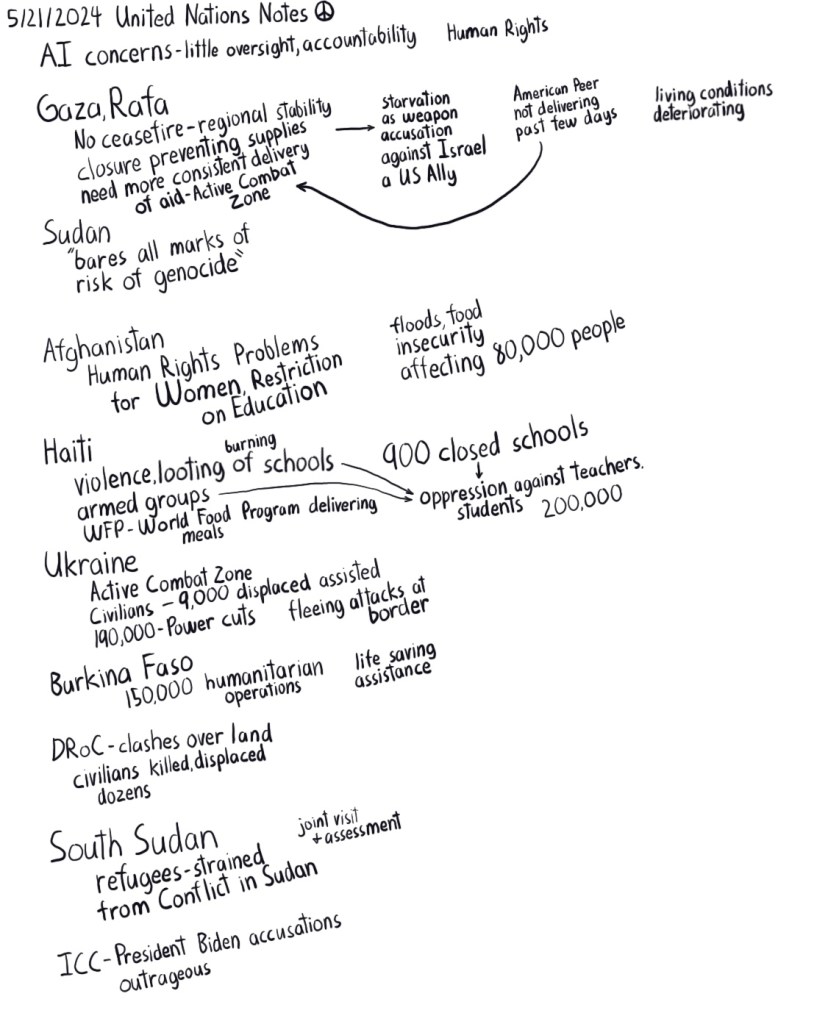 5/21/2024 United Nations Notes ☮
AI concerns-little oversight, accountability Human Rights
Gaza, Rafa
No ceasefire-regional stability
closure preventing supplies
need more consistent delivery
of aid-Active Combat
Zone
starvation
as weapon
accusation
against Israel
a US Ally
American Peer
not delivering
past few days
living conditions
deteriorating
Sudan
"bares all marks of
risk of genocide"
Afghanistan
Human Rights Problems
for Women, Restriction
on Education
floods, food
insecurity
affecting 80,000 people
Haiti
burning
violence, looting of schools
armed groups
WFP-World Food Program delivering
meals
900 closed schools
oppression against teachers.
students 200,000
Ukraine
Active Combat Zone
Civilians - 9,000 displaced assisted
190,000-Power cuts
fleeing attacks at
border
Burkina Faso
150,000 humanitarian
operations
life saving
assistance
DRoC-clashes over land
civilians killed, displaced
dozens
South Sudan
refugees-strained
from Conflict in Sudan
joint visit
+assessment
ICC-President Biden accusations
outrageous